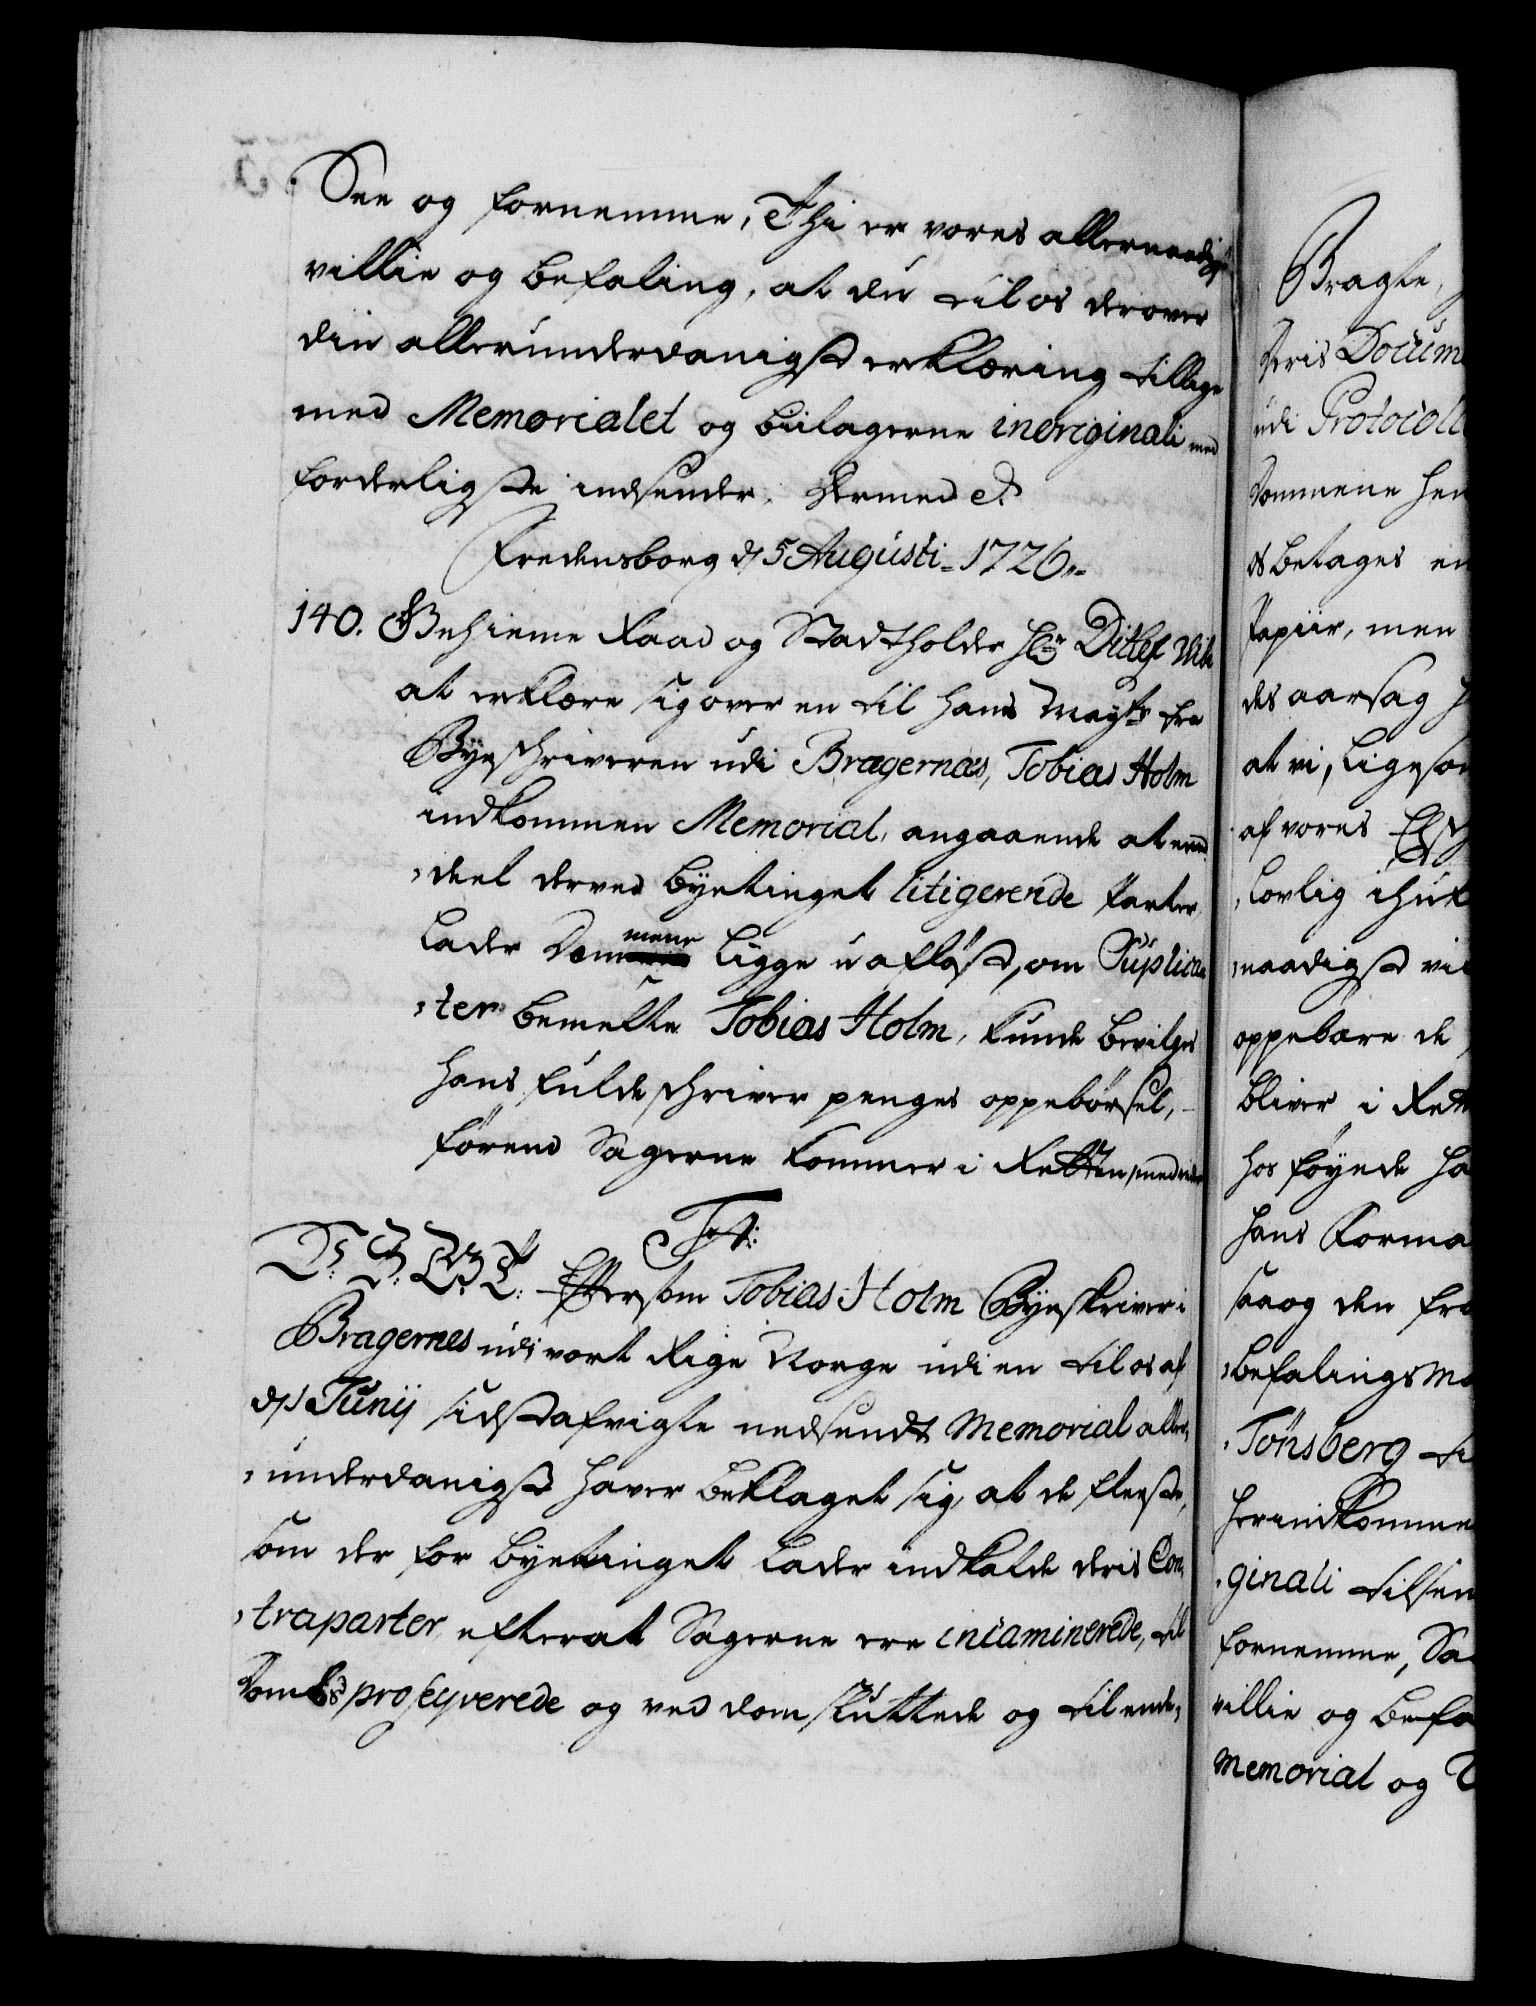 See og fornemme, Thi er vores allernaadigst
villie og befaling, at du til os derover
din allerunderdanigst erklæring tillige
med Memorialet og bielagerne in originali med
forderligste indsender. Hermed &.
Fredensborg d 5 Augusti 1726.
140. Geheime Raad og Stadtholder Hr Ditlef Wibe
at erklære sig over en til hans Mayts fra
Byeschriveren udi Bragernæs, Tobias Holm
indkommen Memorial, angaaende at een
deel derved byetinget litigerende Parter
lader Dommene ligge uafløst, om Suplican
ten bemelte Tobias Holm, kunde bevilges
hans fulde schriver penges oppebørsel,
førend Sagerne kommer i Retten med videre
F 4.
D. F. W. G. T. Eftersom Tobias Holm Byeskriver i
Bragernes udi vort Rige Norge udi en til os af
d 1 Junij sidstafvigte nedsendt Memorial aller
underdanigst haver beklaget sig, at de fleeste,
som der for byetinget lader indkalde deris Con
traparter efterat Sagerne ere incaminerede, til
Doms proseqverede og ved dom sluttede og til ende
Bragte,
deris Docum
udi Protocoll
Dommene hen
betages en
Papiir, men
des aarsag
at vi, ligeson
af vores
lovlig ihuk
naadigst vil
oppebære de
bliver i Rett
hos føyede ha
hans Forma
saa og den fra
befalings Ma
Tønsberg ti
herindkomne
ginali tilsen
fornemme, Sa
villie og befa
Memorial og